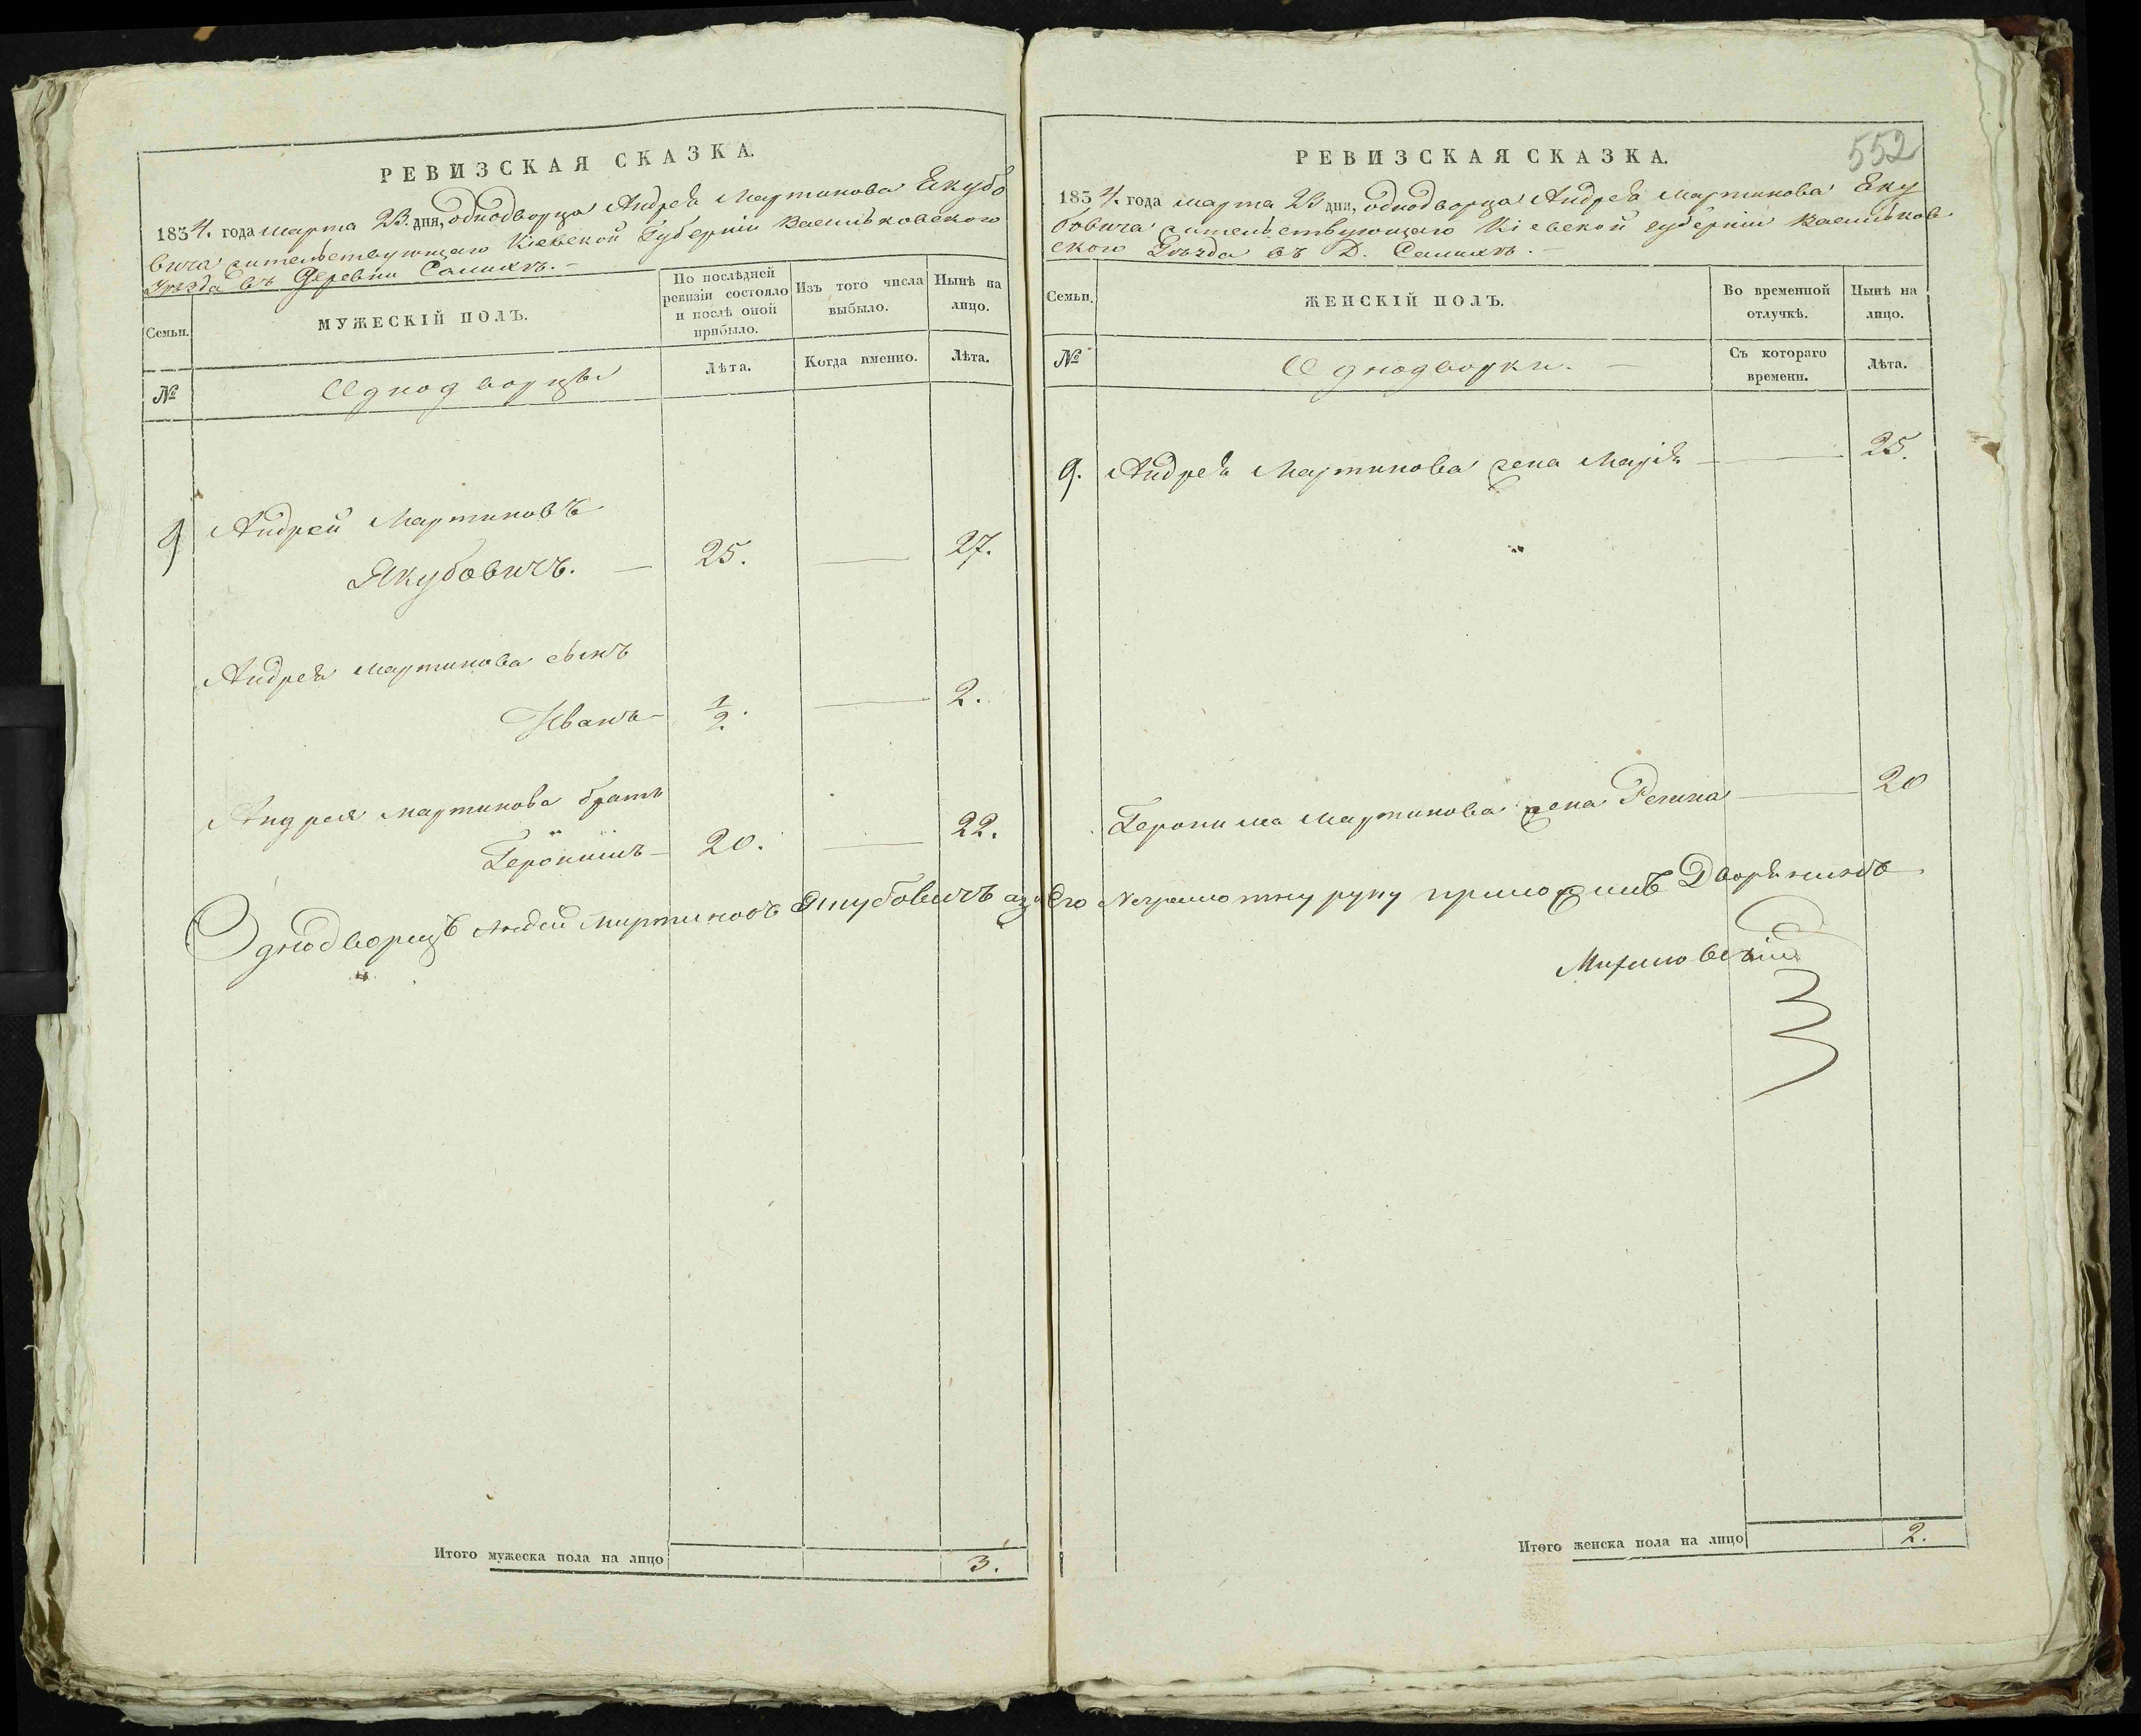 РЕВИЗСКАЯ СКАЗКА.
1834. года марта 23. дня, однодворца Андрея Мартинова Якубо
вича жительствующаго Кіевской Губерніи Васильковскаго
Уѣзда въ Деревни Салихъ.-
Семьи.
МУЖЕСКІЙ ПОЛЪ.
По послѣдней
ревизіи состояло
и послѣ оной
прибыло.
Изъ того числа
выбыло.
Нынѣ на
лицо.
№
Однодворцы
Лѣта.
Когда именно.
Лѣта.
9
Андрей Мартиновъ
Якубовичъ. — 25. — 27.
Андрея Мартинова сынъ
Иванъ — 1/2. — 2.
Андрея Мартинова братъ
Геронимъ — 20. — 22.
Итого мужеска пола на лицо 3.
552
РЕВИЗСКАЯ СКАЗКА.
1834. года марта 23 дня, однодворца Андрея Мартинова Яку
бовича жительствующаго Кіевской губерніи Васильков
скаго Уѣзда въ Д. Салихъ.-
Семьи.
ЖЕНСКІЙ ПОЛЪ.
Во временной
отлучкѣ.
Нынѣ на
лицо.
№
Однодворки. —
Съ котораго
времени.
Лѣта.
9. Андрея Мартинова жена Марія — 25.
Геронима Мартинова жена Регина — 20
Однодворецъ Андрей Мартиновъ Якубовичъ а за его неграмотну руку приложилъ Дворянинъ
Итого женска пола на лицо 2.